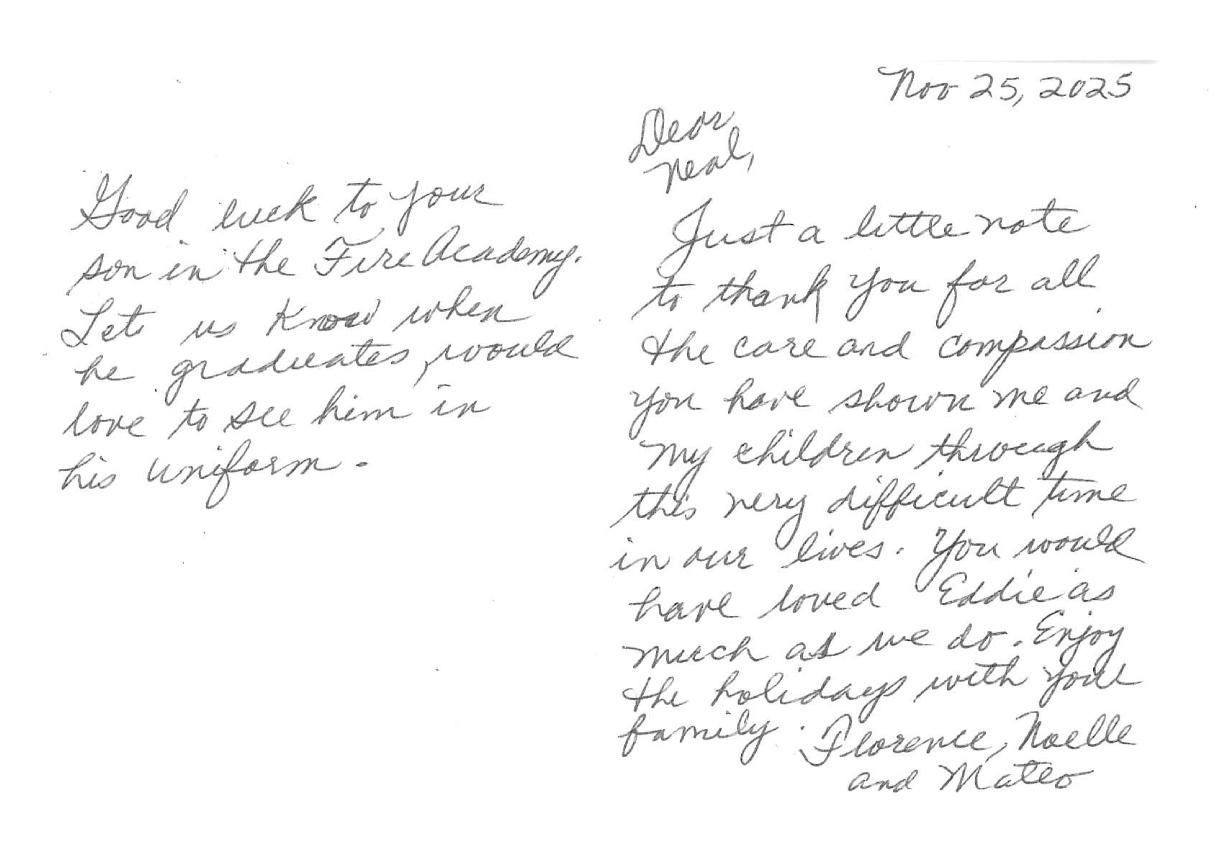 Nov 25, 2025
Dear
Neal,
Just a little note
to thank you for all
the care and compassion
you have shown me and
my children through
this very difficult time
in our lives. You would
have loved Eddie as
much as we do. Enjoy
the holidays with your
family. Florence, Noelle
and Mateo
Good luck to your
son in the Fire Academy.
Let us know when
he graduates, would
love to see him in
his uniform.